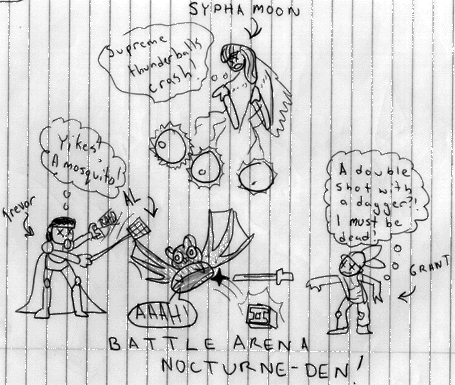 SYPHA MOON
Supreme
thunderballs
crash!
Yikes!
A mosquito!
Trevor
AL
A double
shot with
a dagger?!
I must be
dead!
GRANT
AAAH!
BATTLE ARENA
NOCTURNE-DEN!